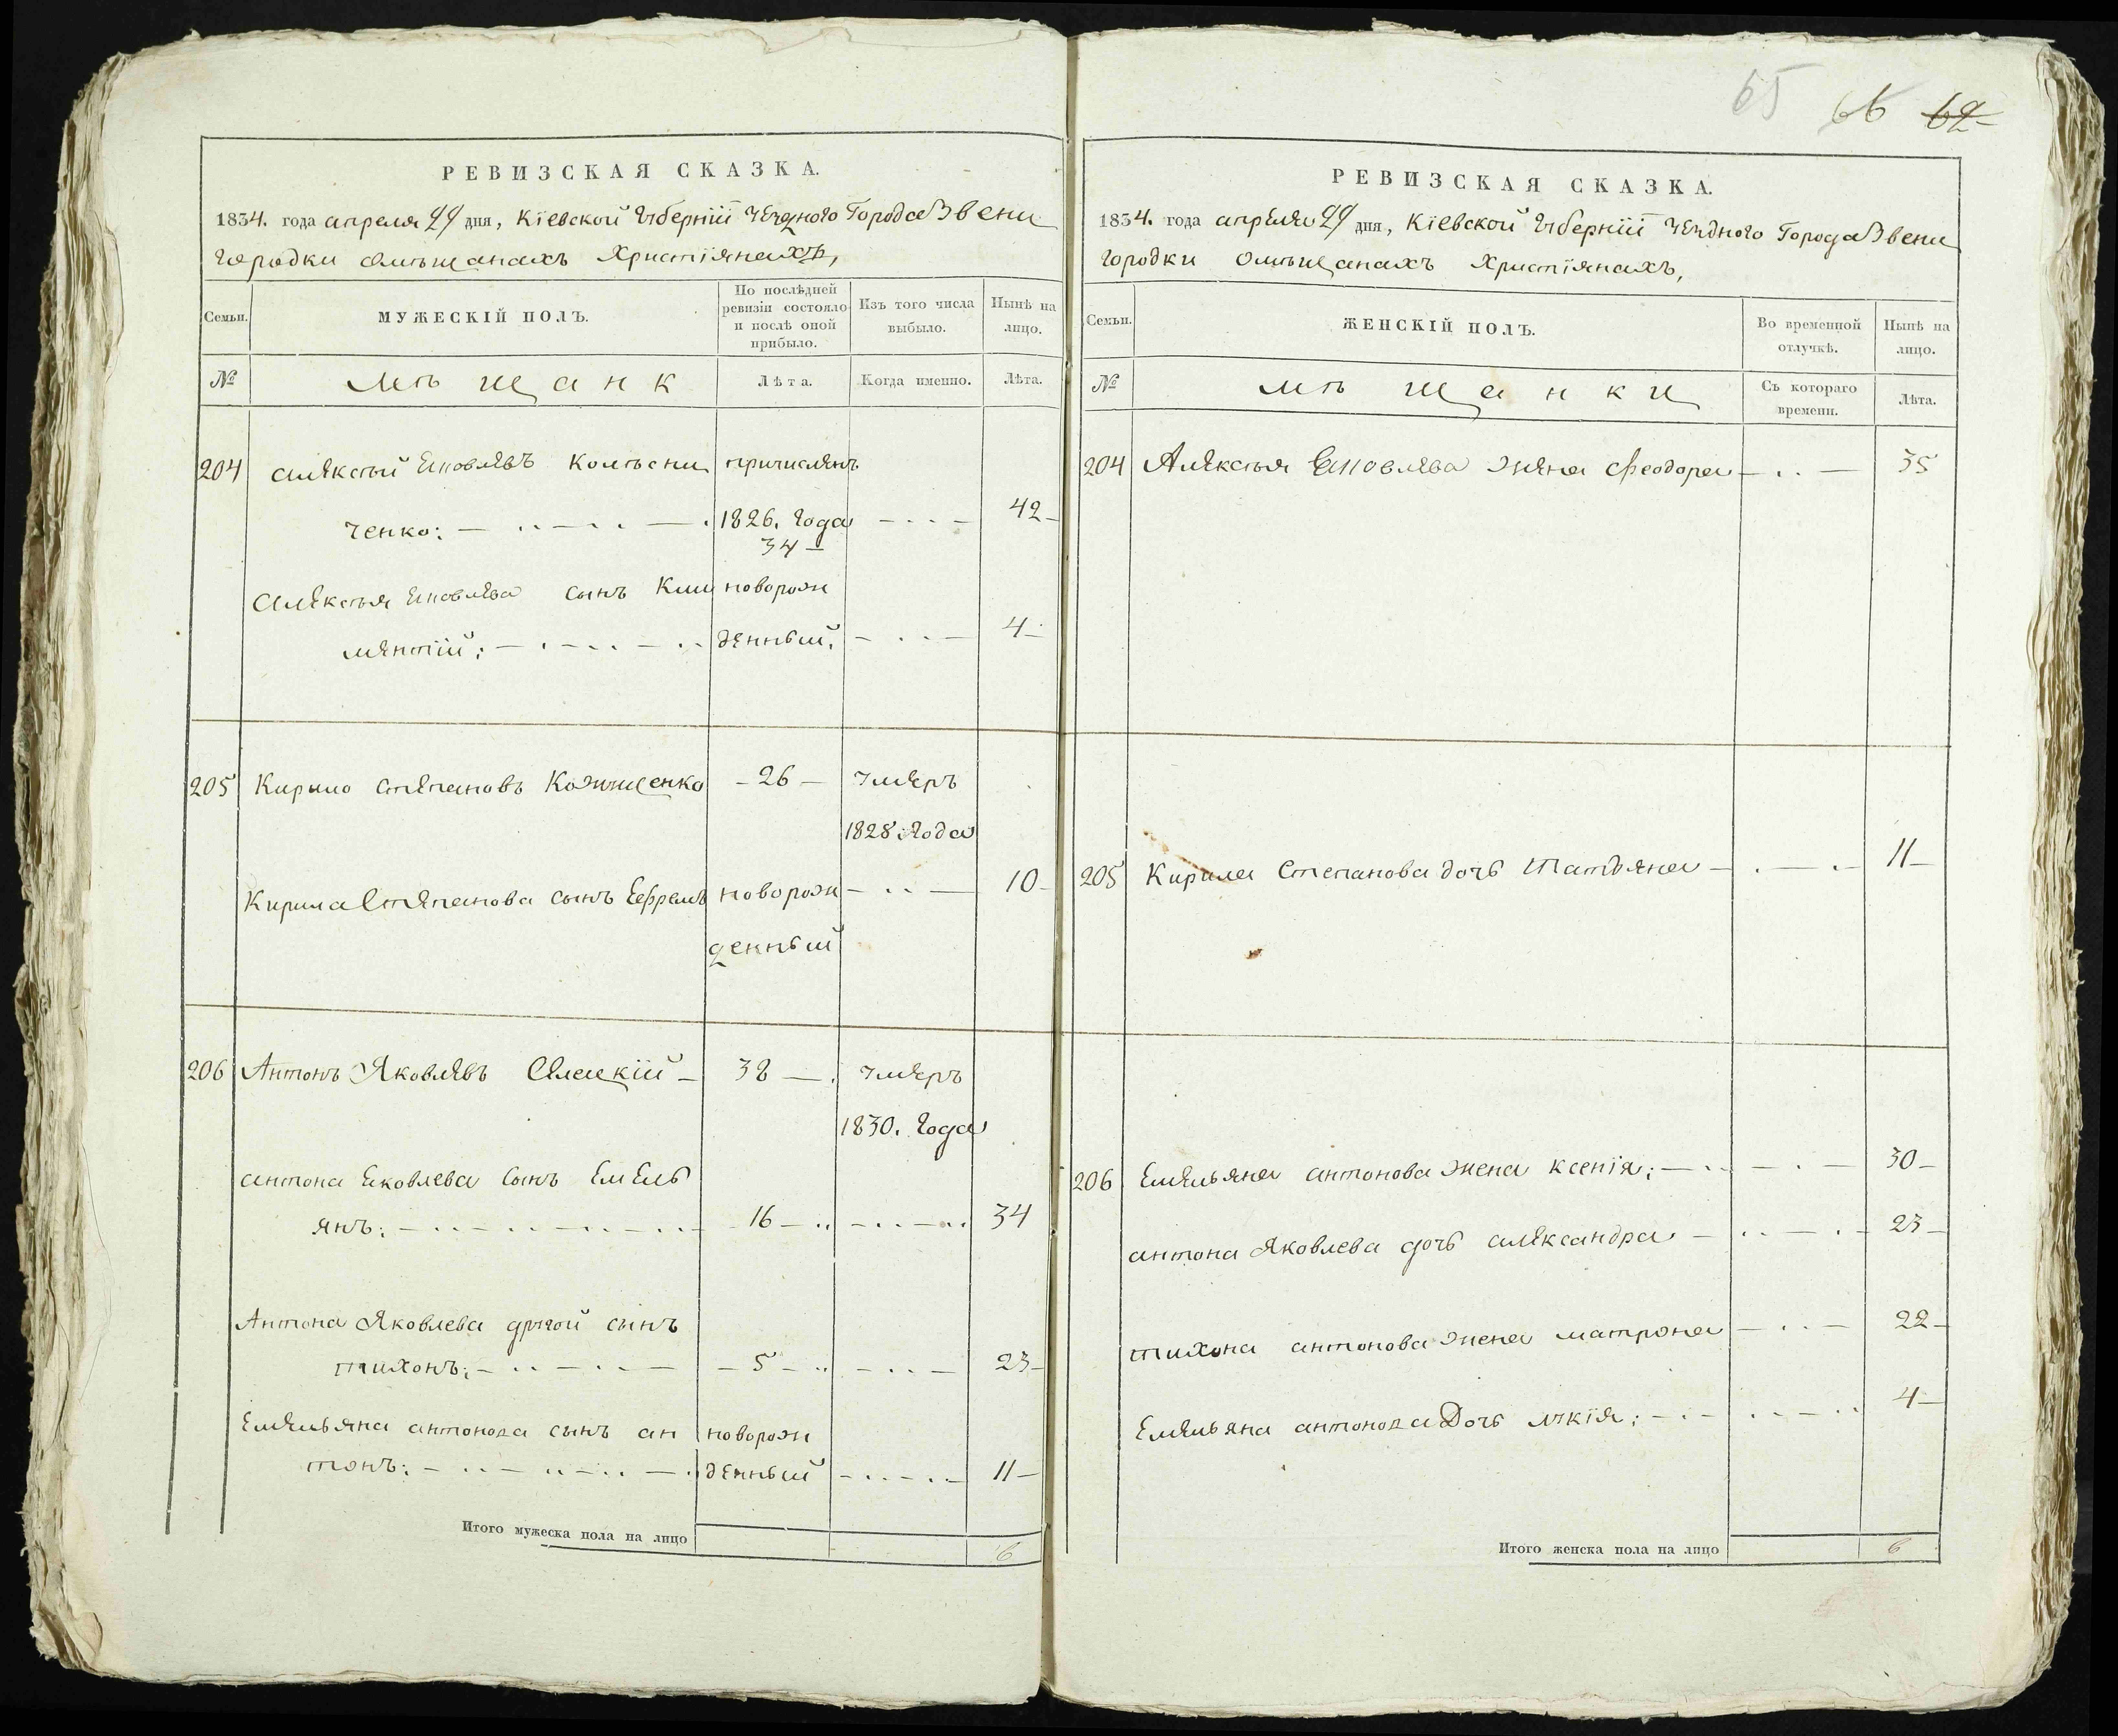 65 66 62
РЕВИЗСКАЯ СКАЗКА.
1834. года апреля дня, Кіевской Губерніи Уѣздного Города Звени
городки Омѣщанахъ Христіянахъ,
Семьи. МУЖЕСКІЙ ПОЛЪ. По послѣдней ревизіи состояло и послѣ оной прибыло. Изъ того числа выбыло. Нынѣ на лицо.
№ Мѣщанѣ Лѣта. Когда именно. Лѣта.
204 Алексѣй Колѣсни причисленъ
ченко: 1826. года 42
34
Алексѣя сынъ Кли новорож
ментій: денный. 4
205 Кирило Степановъ 26 умеръ
1828 года
Кирила Степанова сынъ Ефремъ новорож 10
денный
206 Антонъ Яковлевъ умеръ
1830. года
антона Яковлева сынъ Емель
янъ: 16 34
Антона Яковлева другой сынъ
тихонъ: 5 23
Емельяна антонова сынъ ан новорож
тонъ: денный 11
Итого мужеска пола на лицо 6
РЕВИЗСКАЯ СКАЗКА.
1834. года апреля дня, Кіевской Губерніи Уѣздного Города Звени
городки Омѣщанахъ Христіянахъ,
Семьи. ЖЕНСКІЙ ПОЛЪ. Во временной отлучкѣ. Нынѣ на лицо.
№ мѣщанки Съ котораго времени. Лѣта.
204 Алексѣя жена Феодора 35
205 Кирила Степанова дочь Татьяна 11
206 Емельяна антонова жена ксенія: 30
антона Яковлева дочь александра 23
тихона антонова жена матрона 22
Емельяна антонова Дочь 4
Итого женска пола на лицо 6